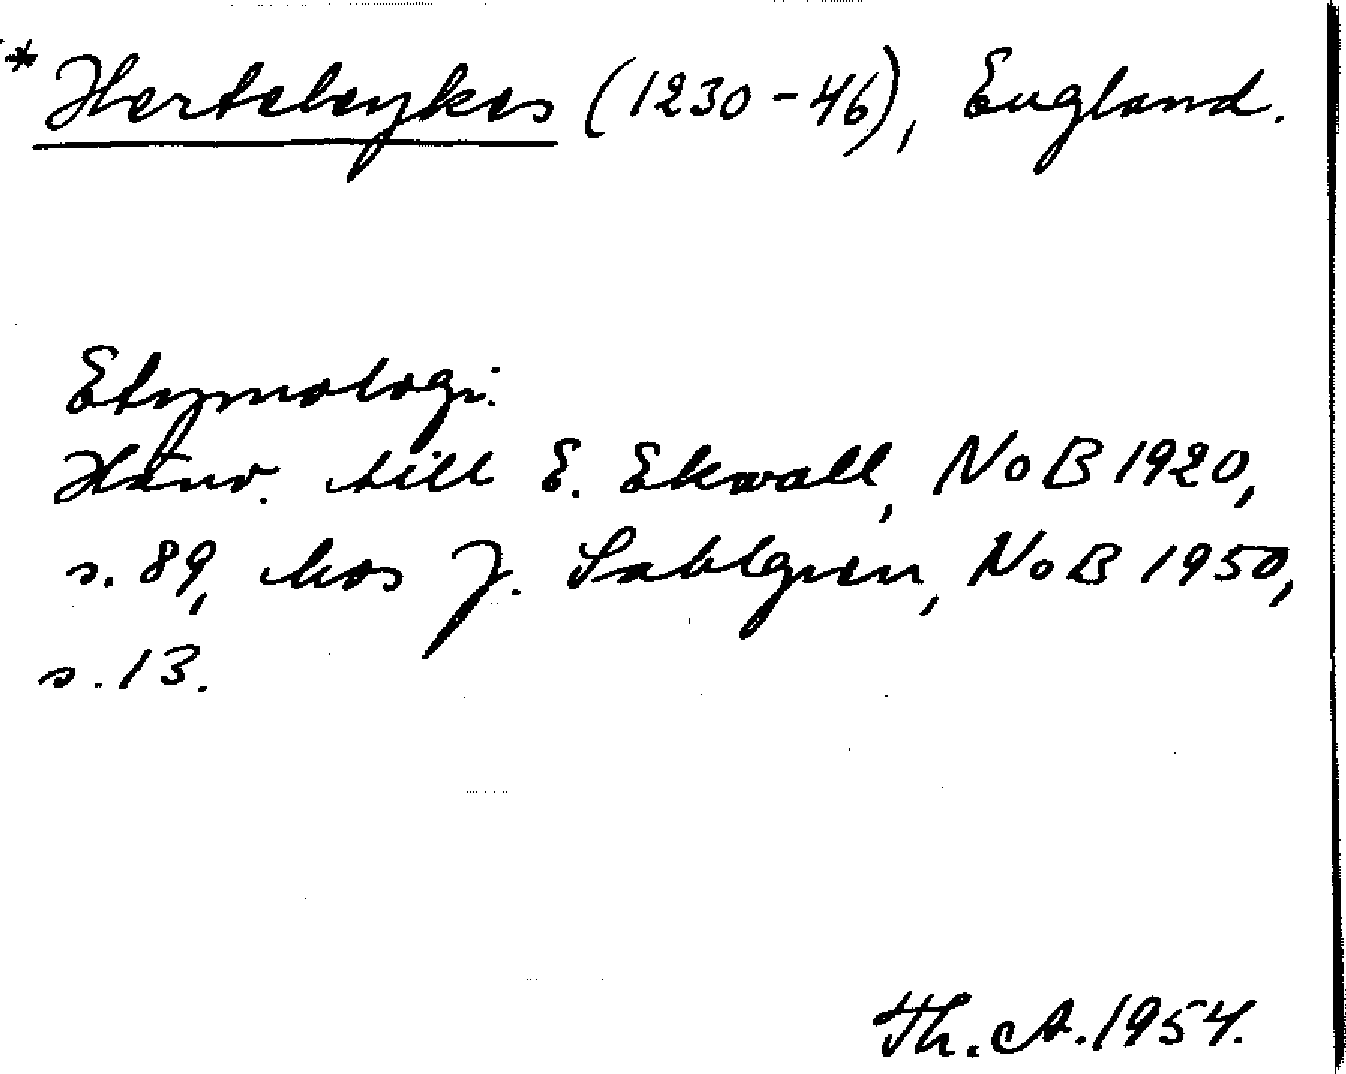 * Herteleykes (1230-46), England.
Etymologi.
Hänv. till E. Ekwall, NoB 1920,
s. 89, hos J. Sahlgren, NoB 1950,
s. 13.
Th. A. 1954.